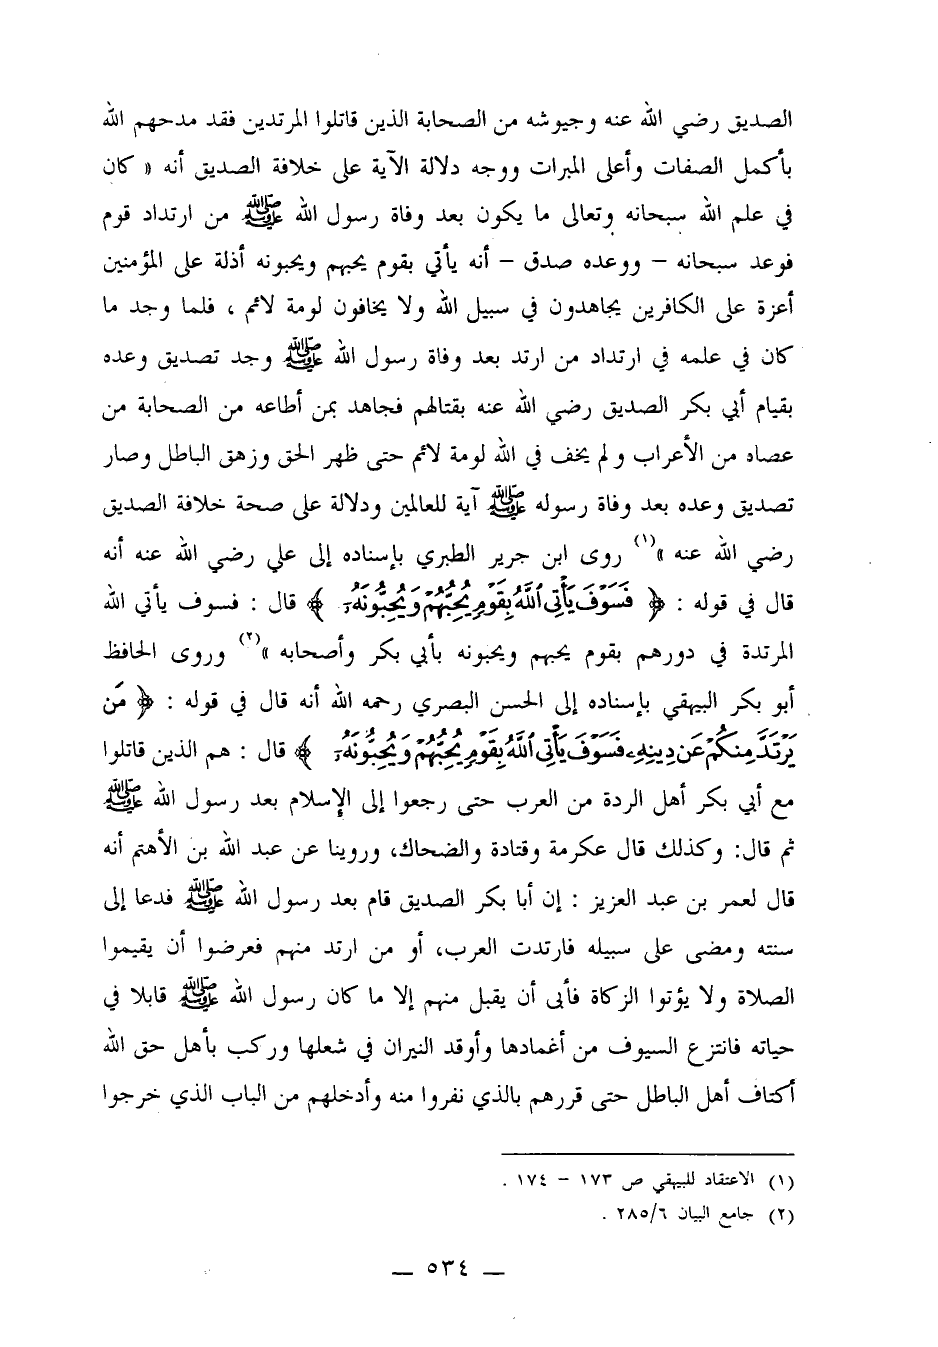 الصديق رضي الله عنه وجيوشه من الصحابة الذين قاتلوا المرتدين فقد مدحهم الله
بأكمل الصفات وأعلى المبرات ووجه دلالة الآية على خلافة الصديق أنه « كان
في علم الله سبحانه وتعالى ما يكون بعد وفاة رسول الله ﷺ من ارتداد قوم
فوعد سبحانه – ووعده صدق – أنه يأتي بقوم يحبهم ويحبونه أذلة على المؤمنين
أعزة على الكافرين يجاهدون في سبيل الله ولا يخافون لومة لائم ، فلما وجد ما
كان في علمه في ارتداد من ارتد بعد وفاة رسول الله ﷺ وجد تصديق وعده
بقيام أبي بكر الصديق رضي الله عنه بقتالهم فجاهد بمن أطاعه من الصحابة من
عصاه من الأعراب ولم يخف في الله لومة لائم حتى ظهر الحق وزهق الباطل وصار
تصديق وعده بعد وفاة رسوله ﷺ آية للعالمين ودلالة على صحة خلافة الصديق
رضي الله عنه »(١) روى ابن جرير الطبري بإسناده إلى علي رضي الله عنه أنه
قال في قوله : ﴿ فَسَوْفَ يَأْتِى ٱللَّهُ بِقَوْمٍ يُحِبُّهُمْ وَيُحِبُّونَهُۥٓ ﴾ قال : فسوف يأتي الله
المرتدة في دورهم بقوم يحبهم ويحبونه بأبي بكر وأصحابه »(٢) وروى الحافظ
أبو بكر البيهقي بإسناده إلى الحسن البصري رحمه الله أنه قال في قوله : ﴿ مَن
يَرْتَدَّ مِنكُمْ عَن دِينِهِۦ فَسَوْفَ يَأْتِى ٱللَّهُ بِقَوْمٍ يُحِبُّهُمْ وَيُحِبُّونَهُۥٓ ﴾ قال : هم الذين قاتلوا
مع أبي بكر أهل الردة من العرب حتى رجعوا إلى الإسلام بعد رسول الله ﷺ
ثم قال: وكذلك قال عكرمة وقتادة والضحاك، وروينا عن عبد الله بن الأهتم أنه
قال لعمر بن عبد العزيز : إن أبا بكر الصديق قام بعد رسول الله ﷺ فدعا إلى
سنته ومضى على سبيله فارتدت العرب، أو من ارتد منهم فعرضوا أن يقيموا
الصلاة ولا يؤتوا الزكاة فأبى أن يقبل منهم إلا ما كان رسول الله ﷺ قابلا في
حياته فانتزع السيوف من أغمادها وأوقد النيران في شعلها وركب بأهل حق الله
أكتاف أهل الباطل حتى قررهم بالذي نفروا منه وأدخلهم من الباب الذي خرجوا
(١) الاعتقاد للبيهقي ص ١٧٣ – ١٧٤ .
(٢) جامع البيان ٢٨٥/٦ .
— ٥٣٤ —